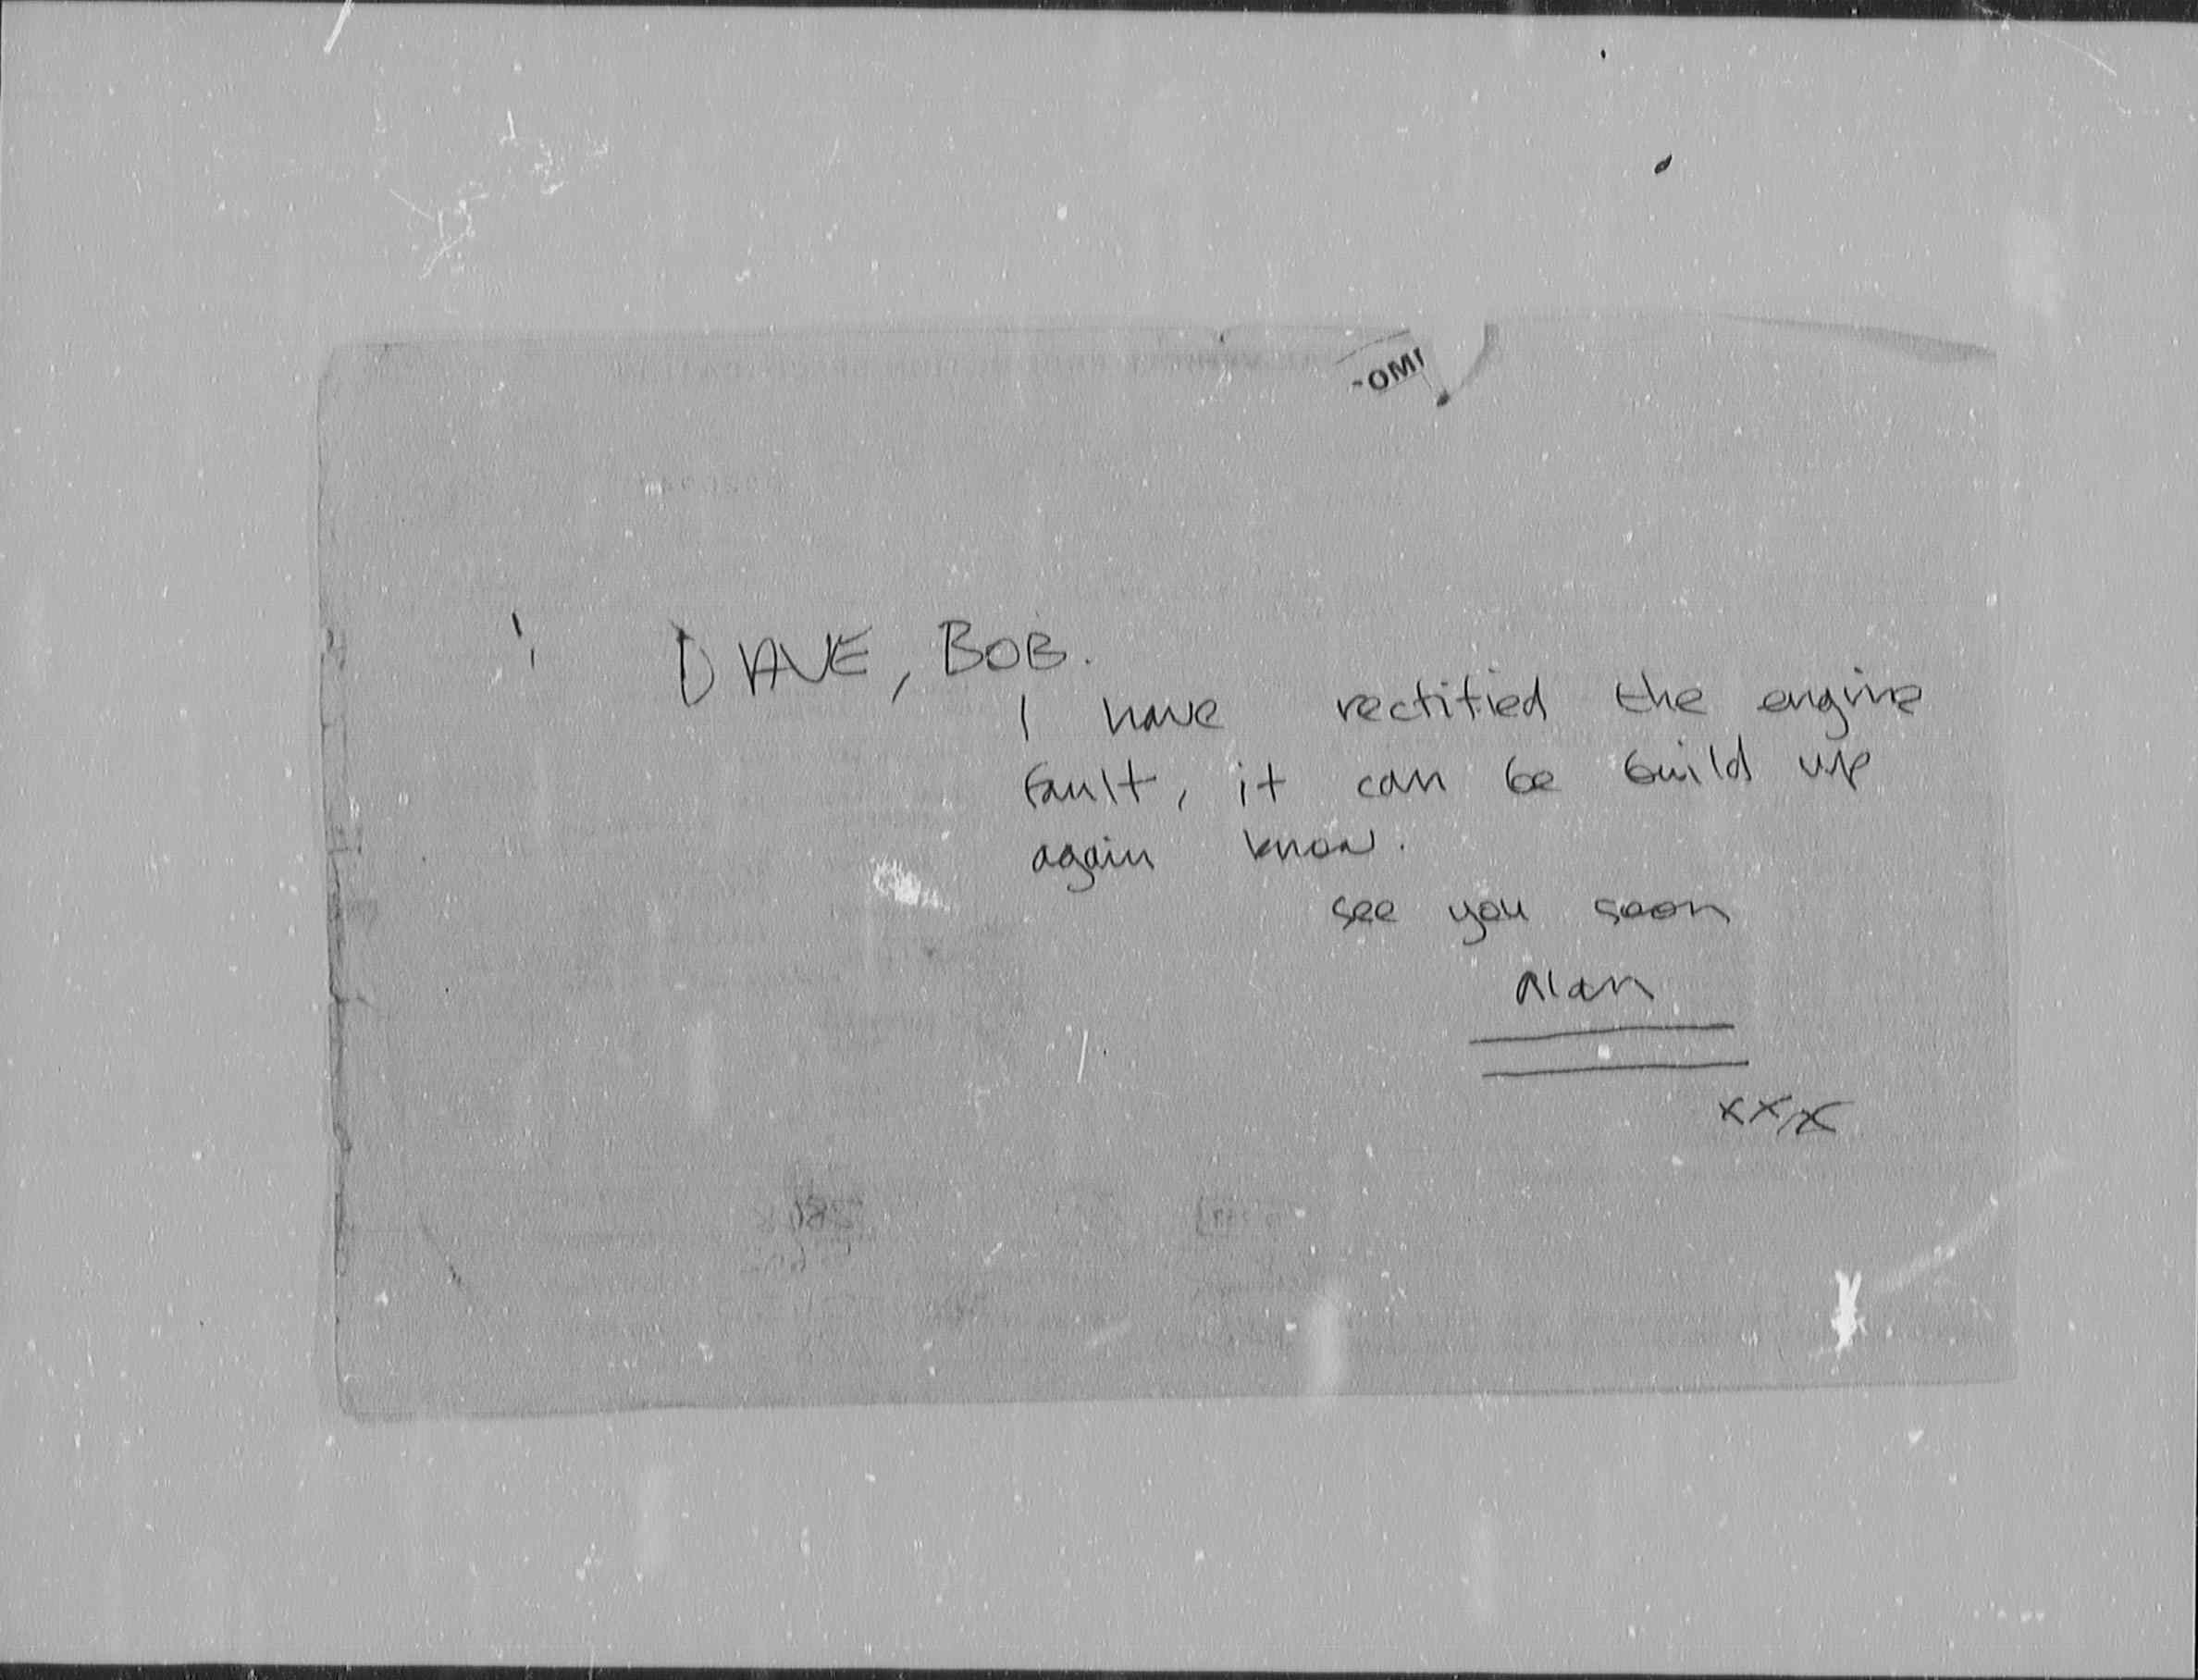 OMI
DAVE, BOB.
I have rectified the engine
fault, it can be build up
again know.
see you soon
Alan
xxx